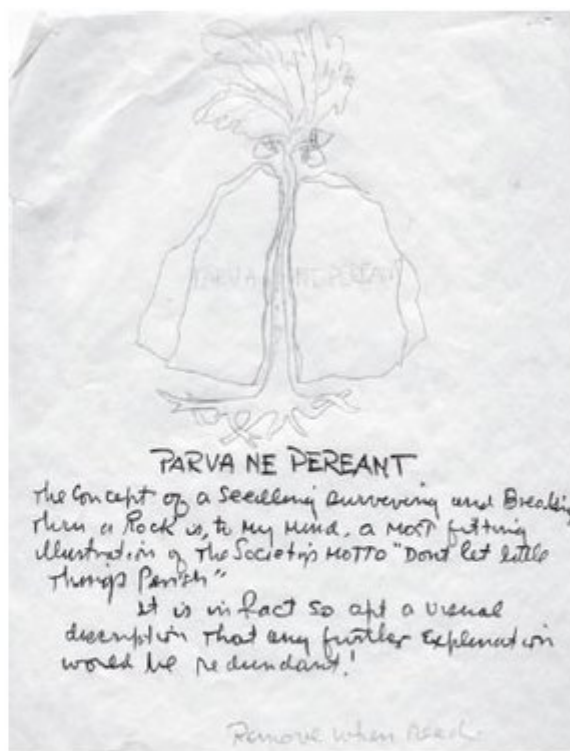 PARVA NE PEREANT
PARVA NE PEREANT
The Concept of a Seedling surveving and Breaking
thru a Rock is, to my mind, a most fitting
illustration of the Society's MOTTO "Dont let little
Things Perish"
It is in fact so apt a visual
description that any further Explanation
would be redundant!
Remove when